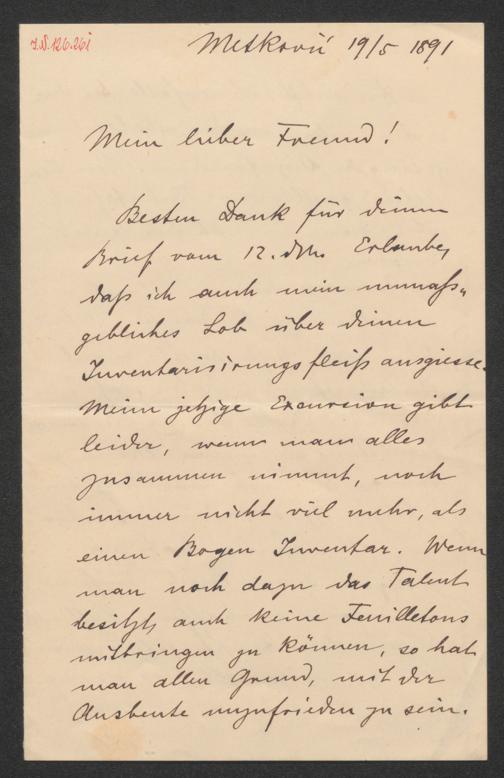 J.N. 126.261
Metković 19/5 1891
Mein lieber Freund!
Besten Dank für deinen
Brief vom 12. d. M. Erlaube,
daß ich auch mein unmaß-
gebliches Lob über deinen
Inventarisirungsfleiß ausgiesse.
Meine jetzige Excursion gibt
leider, wenn man alles
zusammen nimmt, noch
immer nicht viel mehr, als
einen Bogen Inventar. Wenn
man noch dazu das Talent
besitzt, auch keine Feuilletons
mitbringen zu können, so hat
man allen Grund, mit der
Ausbeute unzufrieden zu sein.